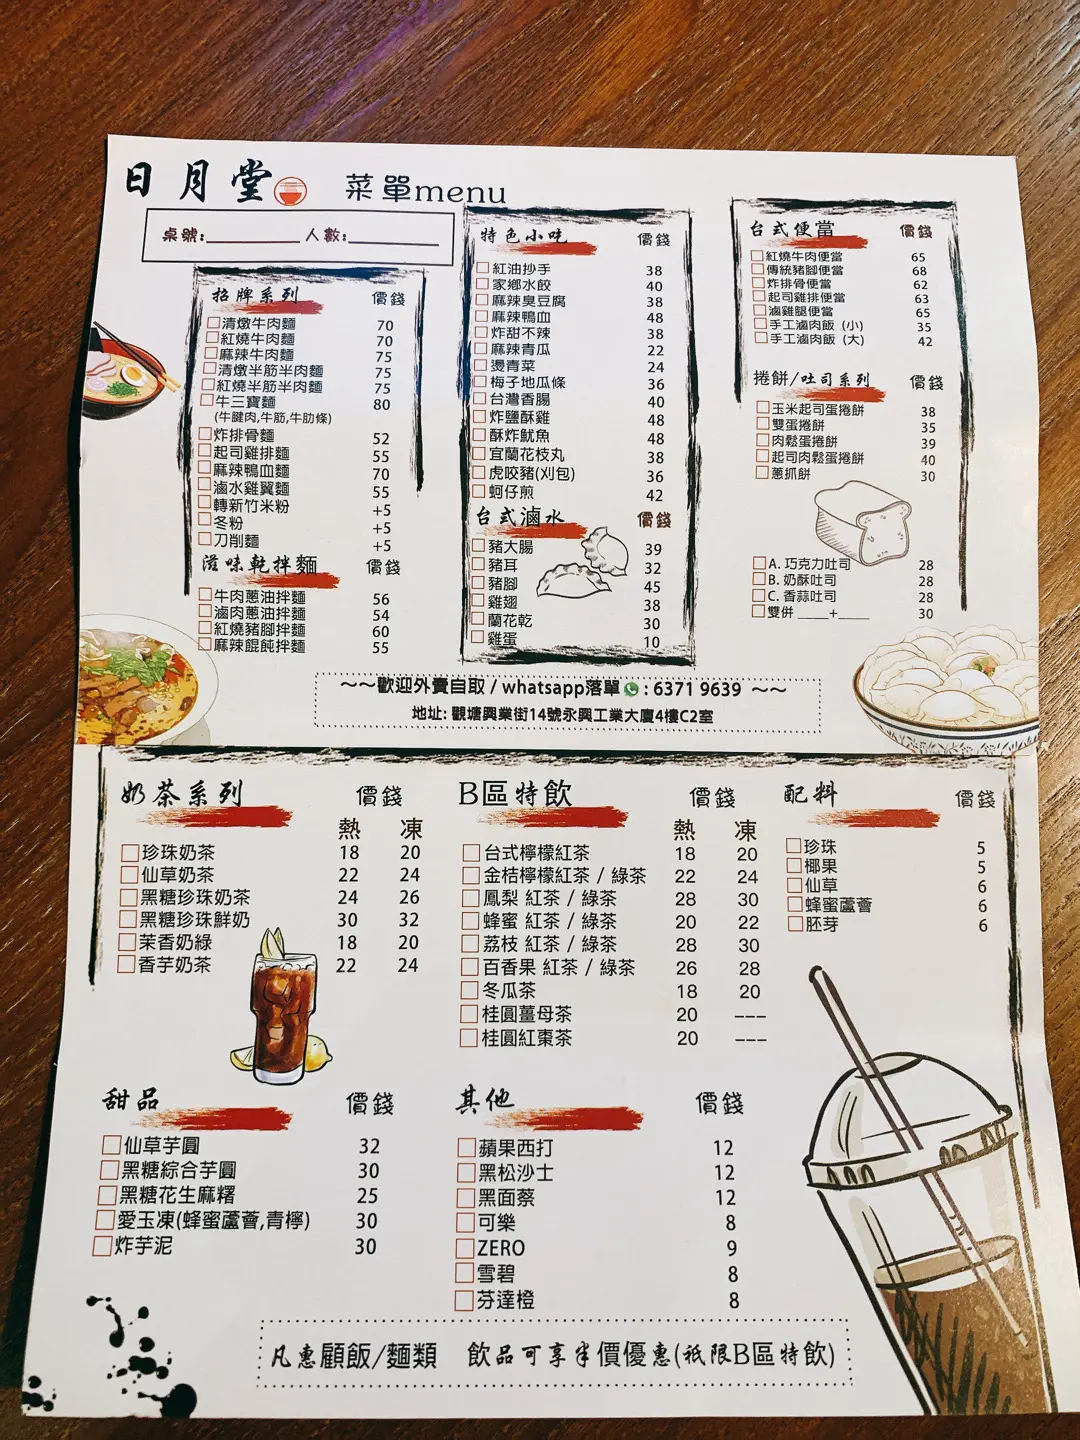 日月堂 菜單menu
桌號:________ 人數:________
招牌系列 價錢
清燉牛肉麵 70
紅燒牛肉麵 70
麻辣牛肉麵 75
清燉半筋半肉麵 75
紅燒半筋半肉麵 75
牛三寶麵 80
(牛腱肉,牛筋,牛肋條)
炸排骨麵 52
起司雞排麵 55
麻辣鴨血麵 70
滷水雞翼麵 55
轉新竹米粉 +5
冬粉 +5
刀削麵 +5
滋味乾拌麵 價錢
牛肉蔥油拌麵 56
滷肉蔥油拌麵 54
紅燒豬腳拌麵 60
麻辣餛飩拌麵 55
特色小吃 價錢
紅油抄手 38
家鄉水餃 40
麻辣臭豆腐 38
麻辣鴨血 48
炸甜不辣 38
麻辣青瓜 22
燙青菜 24
梅子地瓜條 36
台灣香腸 40
炸鹽酥雞 48
酥炸魷魚 48
宜蘭花枝丸 38
虎咬豬(刈包) 36
蚵仔煎 42
台式滷水 價錢
豬大腸 39
豬耳 32
豬腳 45
雞翅 38
蘭花乾 30
雞蛋 10
台式便當 價錢
紅燒牛肉便當 65
傳統豬腳便當 68
炸排骨便當 62
起司雞排便當 63
滷雞腿便當 65
手工滷肉飯 (小) 35
手工滷肉飯 (大) 42
捲餅/吐司系列 價錢
玉米起司蛋捲餅 38
雙蛋捲餅 35
肉鬆蛋捲餅 39
起司肉鬆蛋捲餅 40
蔥抓餅 30
A. 巧克力吐司 28
B. 奶酥吐司 28
C. 香蒜吐司 28
雙併 ____+____ 30
~~歡迎外賣自取 / whatsapp落單 : 6371 9639 ~~
地址: 觀塘興業街14號永興工業大廈4樓C2室
奶茶系列 價錢
熱 凍
珍珠奶茶 18 20
仙草奶茶 22 24
黑糖珍珠奶茶 24 26
黑糖珍珠鮮奶 30 32
茉香奶綠 18 20
香芋奶茶 22 24
B區特飲 價錢
熱 凍
台式檸檬紅茶 18 20
金桔檸檬紅茶 / 綠茶 22 24
鳳梨 紅茶 / 綠茶 28 30
蜂蜜 紅茶 / 綠茶 20 22
荔枝 紅茶 / 綠茶 28 30
百香果 紅茶 / 綠茶 26 28
冬瓜茶 18 20
桂圓薑母茶 20 ---
桂圓紅棗茶 20 ---
配料 價錢
珍珠 5
椰果 5
仙草 6
蜂蜜蘆薈 6
胚芽 6
甜品 價錢
仙草芋圓 32
黑糖綜合芋圓 30
黑糖花生麻糬 25
愛玉凍(蜂蜜蘆薈,青檸) 30
炸芋泥 30
其他 價錢
蘋果西打 12
黑松沙士 12
黑面蔡 12
可樂 8
ZERO 9
雪碧 8
芬達橙 8
凡惠顧飯/麵類 飲品可享半價優惠(祇限B區特飲)